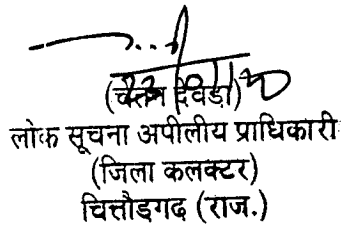 (चेतन देवड़ा)
लोक सूचना अपीलीय प्राधिकारी
(जिला कलक्टर)
चित्तौड़गढ़ (राज.)